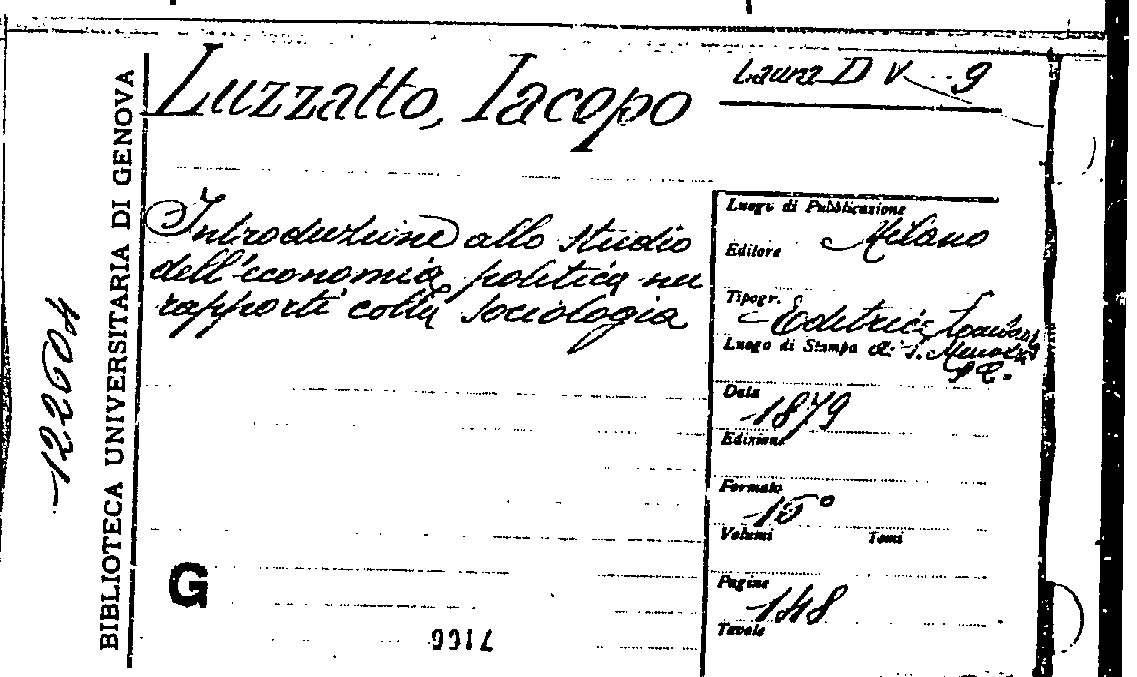 Luzzatto, Iacopo
Laura D V 9
BIBLIOTECA UNIVERSITARIA DI GENOVA
122604
Introduzione allo studio
dell'economia politica nei
rapporti colla sociologia
Luogo di Pubblicazione
Milano
Editore
Tipogr.
Editrice
Luogo di Stampa
Data
1879
Edizione
Formato
16°
Volumi Tomi
Pagine
148
Tavole
G